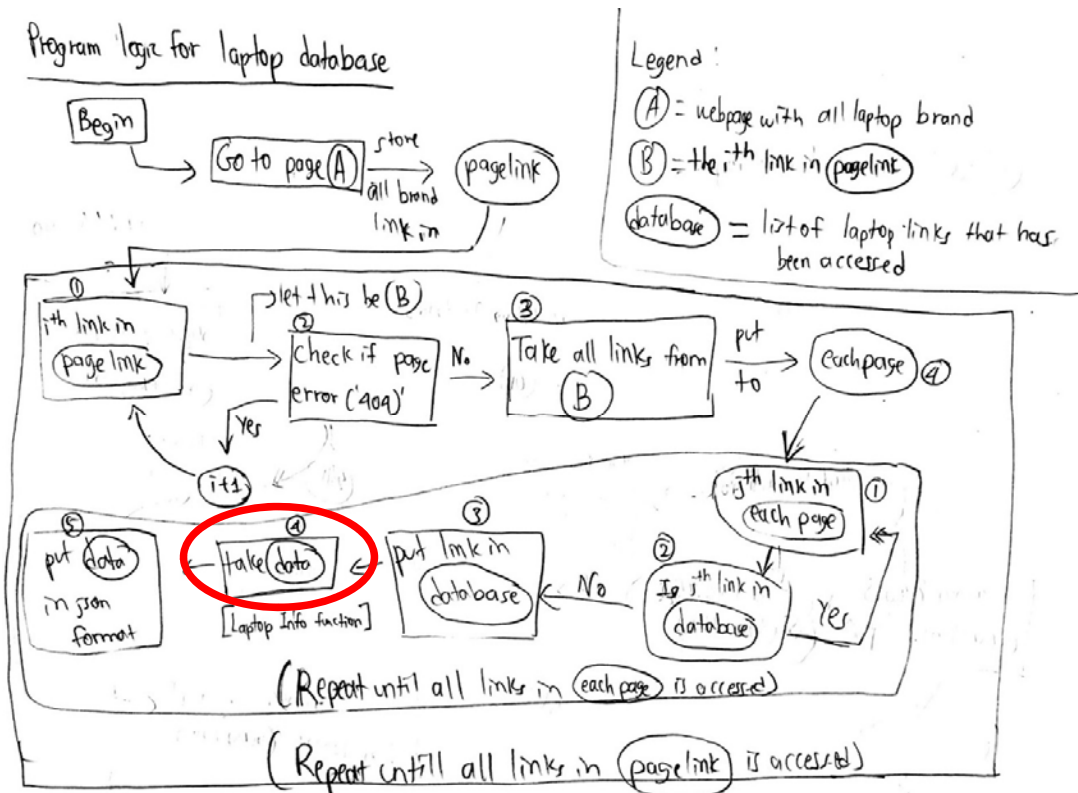 Program logic for laptop database
Begin
Go to page A
store
all brand
link in
pagelink
Legend:
A = webpage with all laptop brand
B = the ith link in pagelink
database = list of laptop links that has
been accessed
①
ith link in
page link
let this be B
②
check if page
error ('404)'
No
Yes
i+1
③
Take all links from
B
put
to
eachpage ④
①
jth link in
each page
②
Is jth link in
database
Yes
No
③
put link in
database
④
take data
[Laptop Info function]
⑤
put data
in json
format
(Repeat until all links in each page is accessed)
(Repeat untill all links in pagelink is accessed)